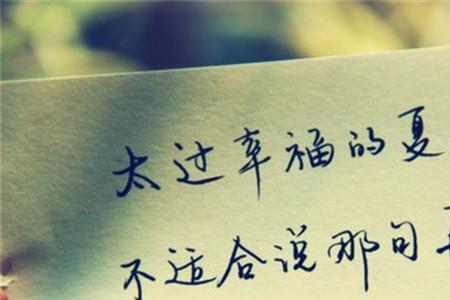 太过幸福的夏
不适合说那句